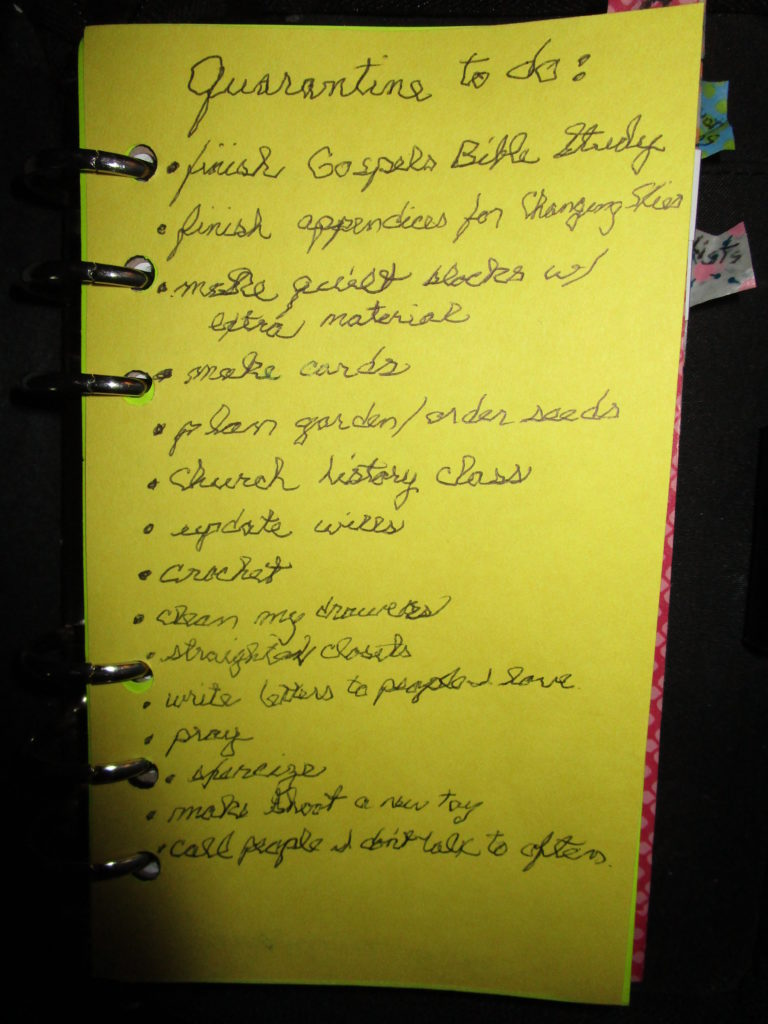 Quarantine to do:
• finish Gospels Bible Study
• finish appendices for Changing Skies
• make quilt blocks w/
extra material
• make cards
• plan garden/order seeds
• Church history class
• update wills
• crochet
• clean my drawers
• straighten closets
• write letters to people I love
• pray
•
• make a new toy
• call people I don't talk to often.
ists